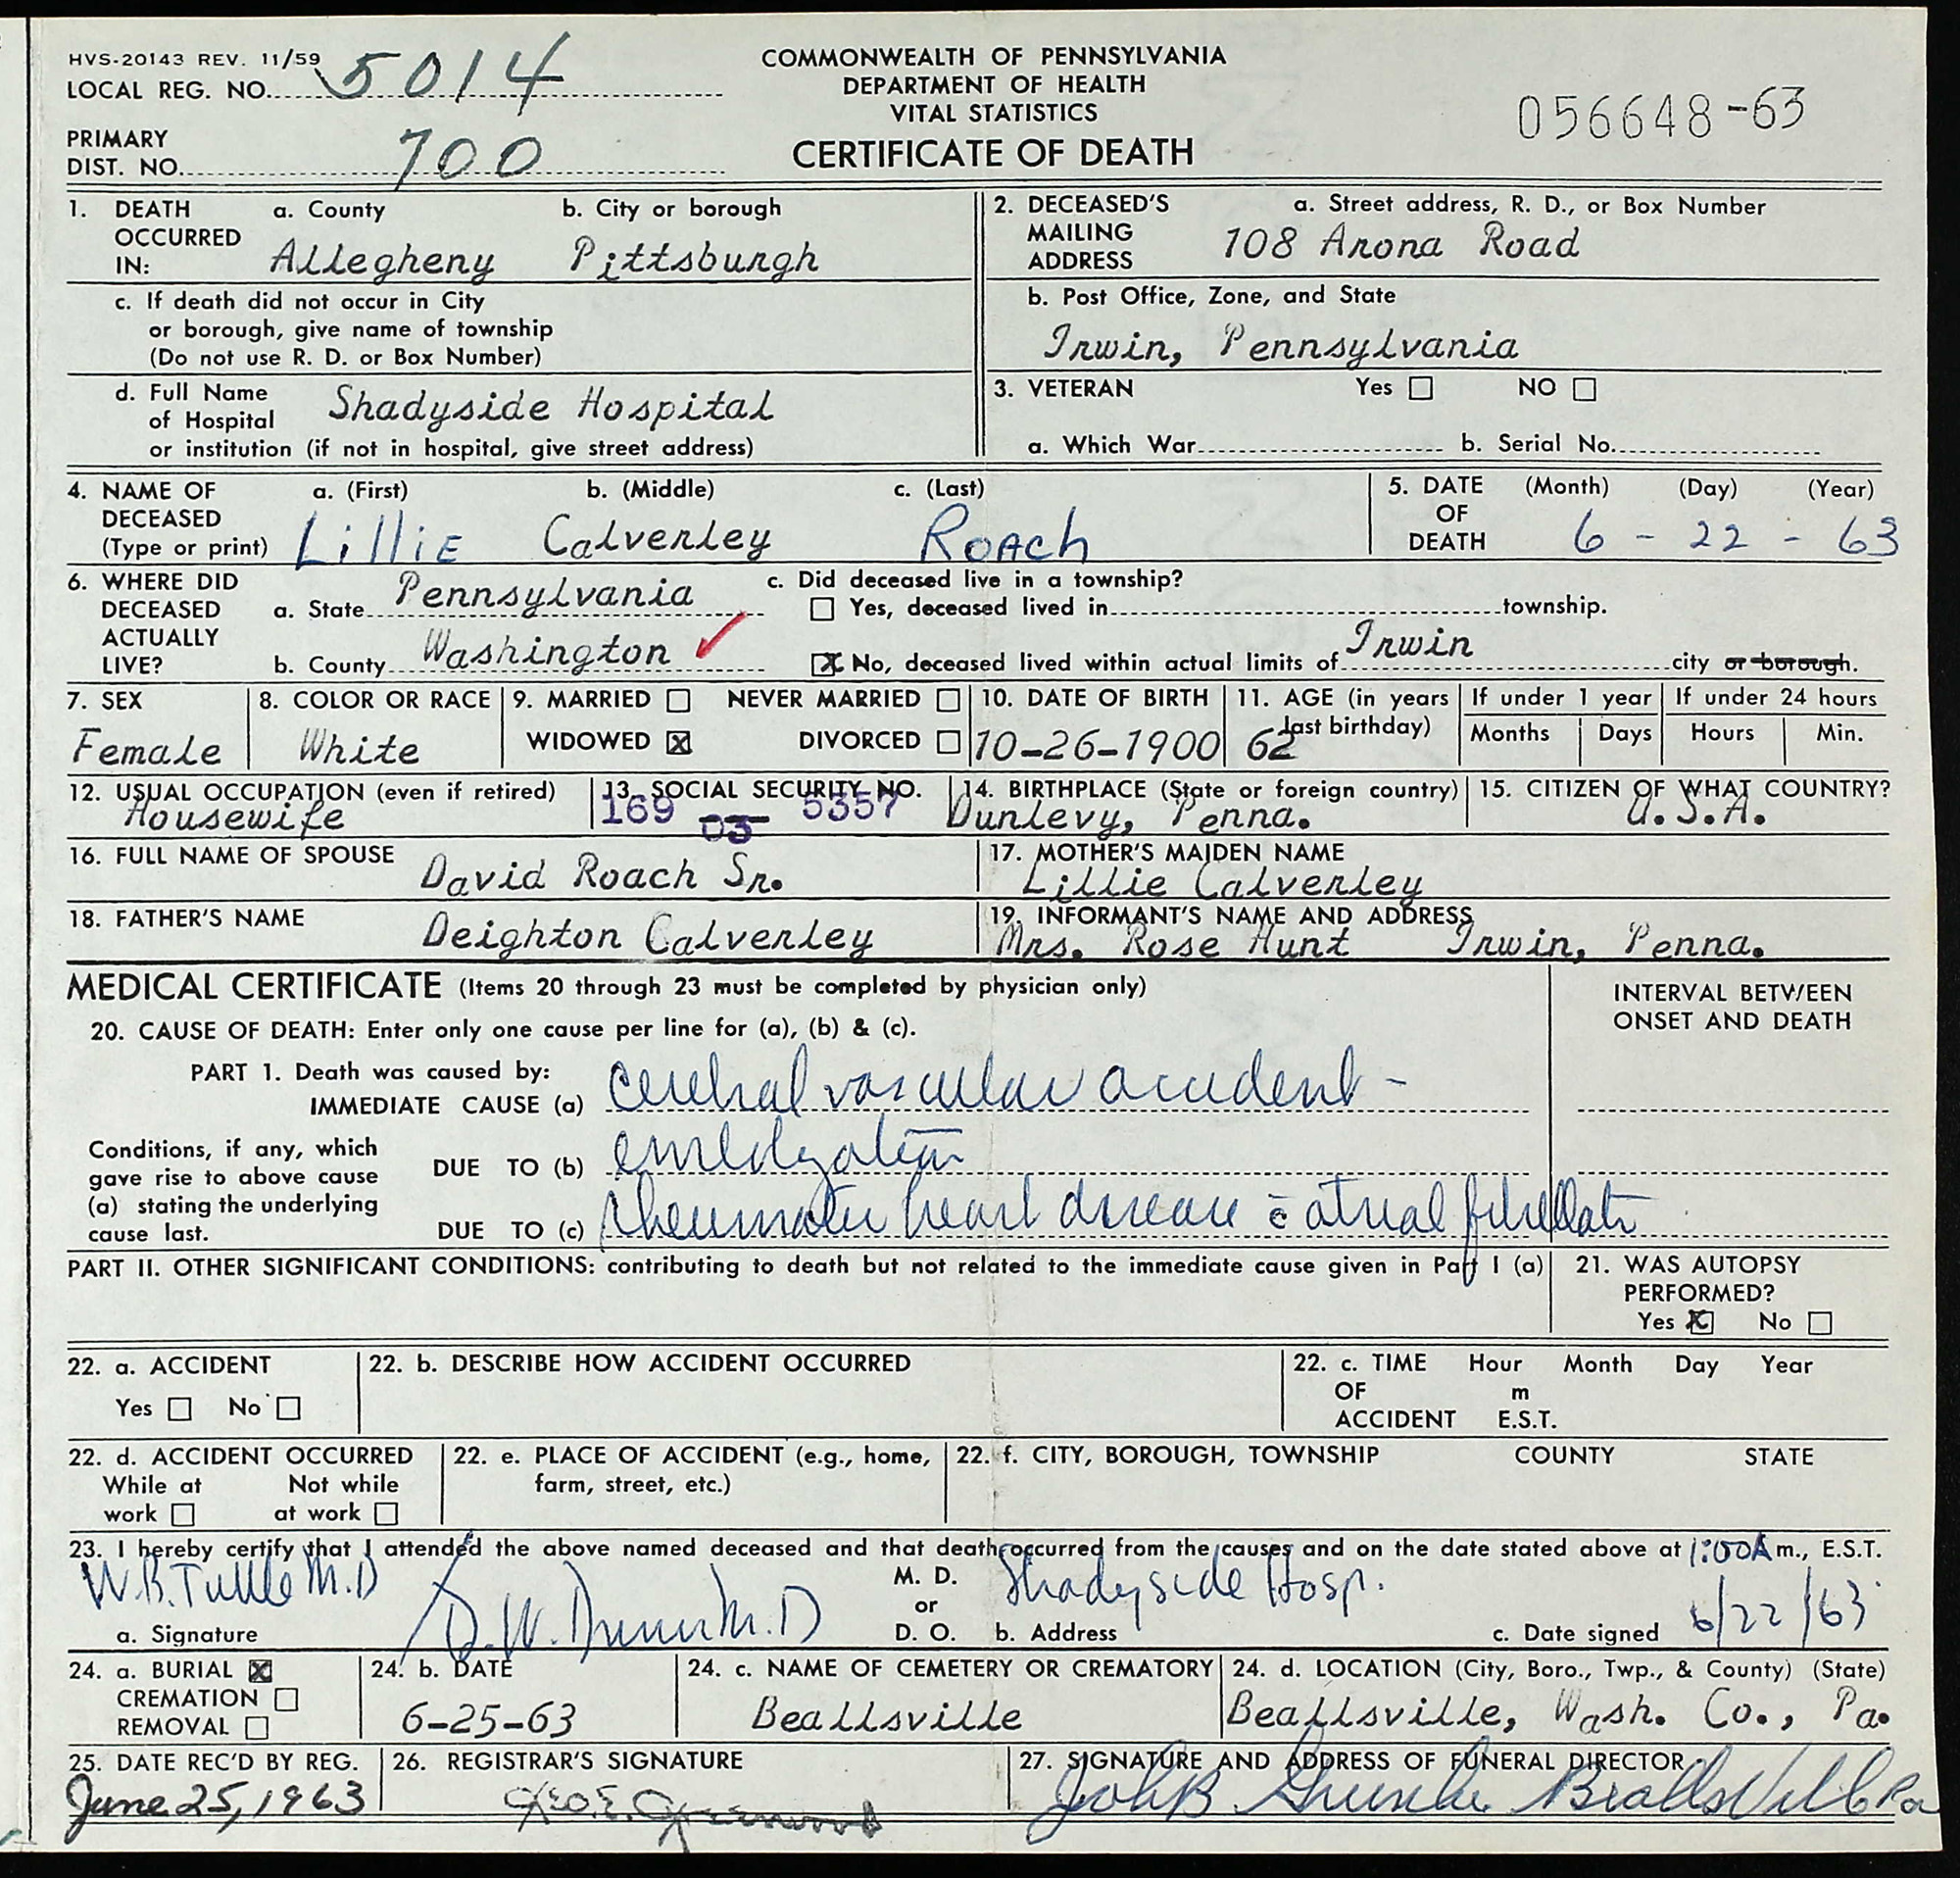 HVS-20143 REV. 11/59
LOCAL REG. NO. 5014
PRIMARY
DIST. NO. 700
COMMONWEALTH OF PENNSYLVANIA
DEPARTMENT OF HEALTH
VITAL STATISTICS
CERTIFICATE OF DEATH
056648-63
1. DEATH OCCURRED IN: a. County Allegheny b. City or borough Pittsburgh
c. If death did not occur in City
or borough, give name of township
(Do not use R. D. or Box Number)
d. Full Name
of Hospital Shadyside Hospital
or institution (if not in hospital, give street address)
2. DECEASED'S MAILING ADDRESS a. Street address, R. D., or Box Number
108 Arona Road
b. Post Office, Zone, and State
Irwin, Pennsylvania
3. VETERAN Yes ☐ NO ☐
a. Which War b. Serial No.
4. NAME OF DECEASED (Type or print) a. (First) b. (Middle) c. (Last)
Lillie Calverley Roach
5. DATE OF DEATH (Month) (Day) (Year)
6 - 22 - 63
6. WHERE DID DECEASED ACTUALLY LIVE?
a. State Pennsylvania
b. County Washington ✓
c. Did deceased live in a township?
☐ Yes, deceased lived in township.
☒ No, deceased lived within actual limits of Irwin city or borough.
7. SEX
Female
8. COLOR OR RACE
White
9. MARRIED ☐ NEVER MARRIED ☐
WIDOWED ☒ DIVORCED ☐
10. DATE OF BIRTH
10-26-1900
11. AGE (in years last birthday)
62
If under 1 year
Months Days
If under 24 hours
Hours Min.
12. USUAL OCCUPATION (even if retired)
Housewife
13. SOCIAL SECURITY NO.
169 03 5357
14. BIRTHPLACE (State or foreign country)
Dunlevy, Penna.
15. CITIZEN OF WHAT COUNTRY?
U.S.A.
16. FULL NAME OF SPOUSE
David Roach Sr.
17. MOTHER'S MAIDEN NAME
Lillie Calverley
18. FATHER'S NAME
Deighton Calverley
19. INFORMANT'S NAME AND ADDRESS
Mrs. Rose Hunt Irwin, Penna.
MEDICAL CERTIFICATE (Items 20 through 23 must be completed by physician only)
INTERVAL BETWEEN
ONSET AND DEATH
20. CAUSE OF DEATH: Enter only one cause per line for (a), (b) & (c).
PART 1. Death was caused by:
IMMEDIATE CAUSE (a) cerebral vascular accident -
Conditions, if any, which
gave rise to above cause
(a) stating the underlying
cause last.
DUE TO (b) embolization
DUE TO (c) rheumatic heart disease c̄ atrial fibrillatn
PART II. OTHER SIGNIFICANT CONDITIONS: contributing to death but not related to the immediate cause given in Part I (a)
21. WAS AUTOPSY
PERFORMED?
Yes ☒ No ☐
22. a. ACCIDENT
Yes ☐ No ☐
22. b. DESCRIBE HOW ACCIDENT OCCURRED
22. c. TIME OF ACCIDENT Hour Month Day Year
m
E.S.T.
22. d. ACCIDENT OCCURRED
While at work ☐ Not while at work ☐
22. e. PLACE OF ACCIDENT (e.g., home,
farm, street, etc.)
22. f. CITY, BOROUGH, TOWNSHIP COUNTY STATE
23. I hereby certify that I attended the above named deceased and that death occurred from the causes and on the date stated above at 1:00A m., E.S.T.
W.B. Tuttle M.D
D.W. M.D
a. Signature
M. D.
or
D. O.
Shadyside Hosp.
b. Address
c. Date signed 6/22/63
24. a. BURIAL ☒
CREMATION ☐
REMOVAL ☐
24. b. DATE
6-25-63
24. c. NAME OF CEMETERY OR CREMATORY
Beallsville
24. d. LOCATION (City, Boro., Twp., & County) (State)
Beallsville, Wash. Co., Pa.
25. DATE REC'D BY REG.
June 25, 1963
26. REGISTRAR'S SIGNATURE
Geo. E. Greenwood
27. SIGNATURE AND ADDRESS OF FUNERAL DIRECTOR
John B Beallsville Pa